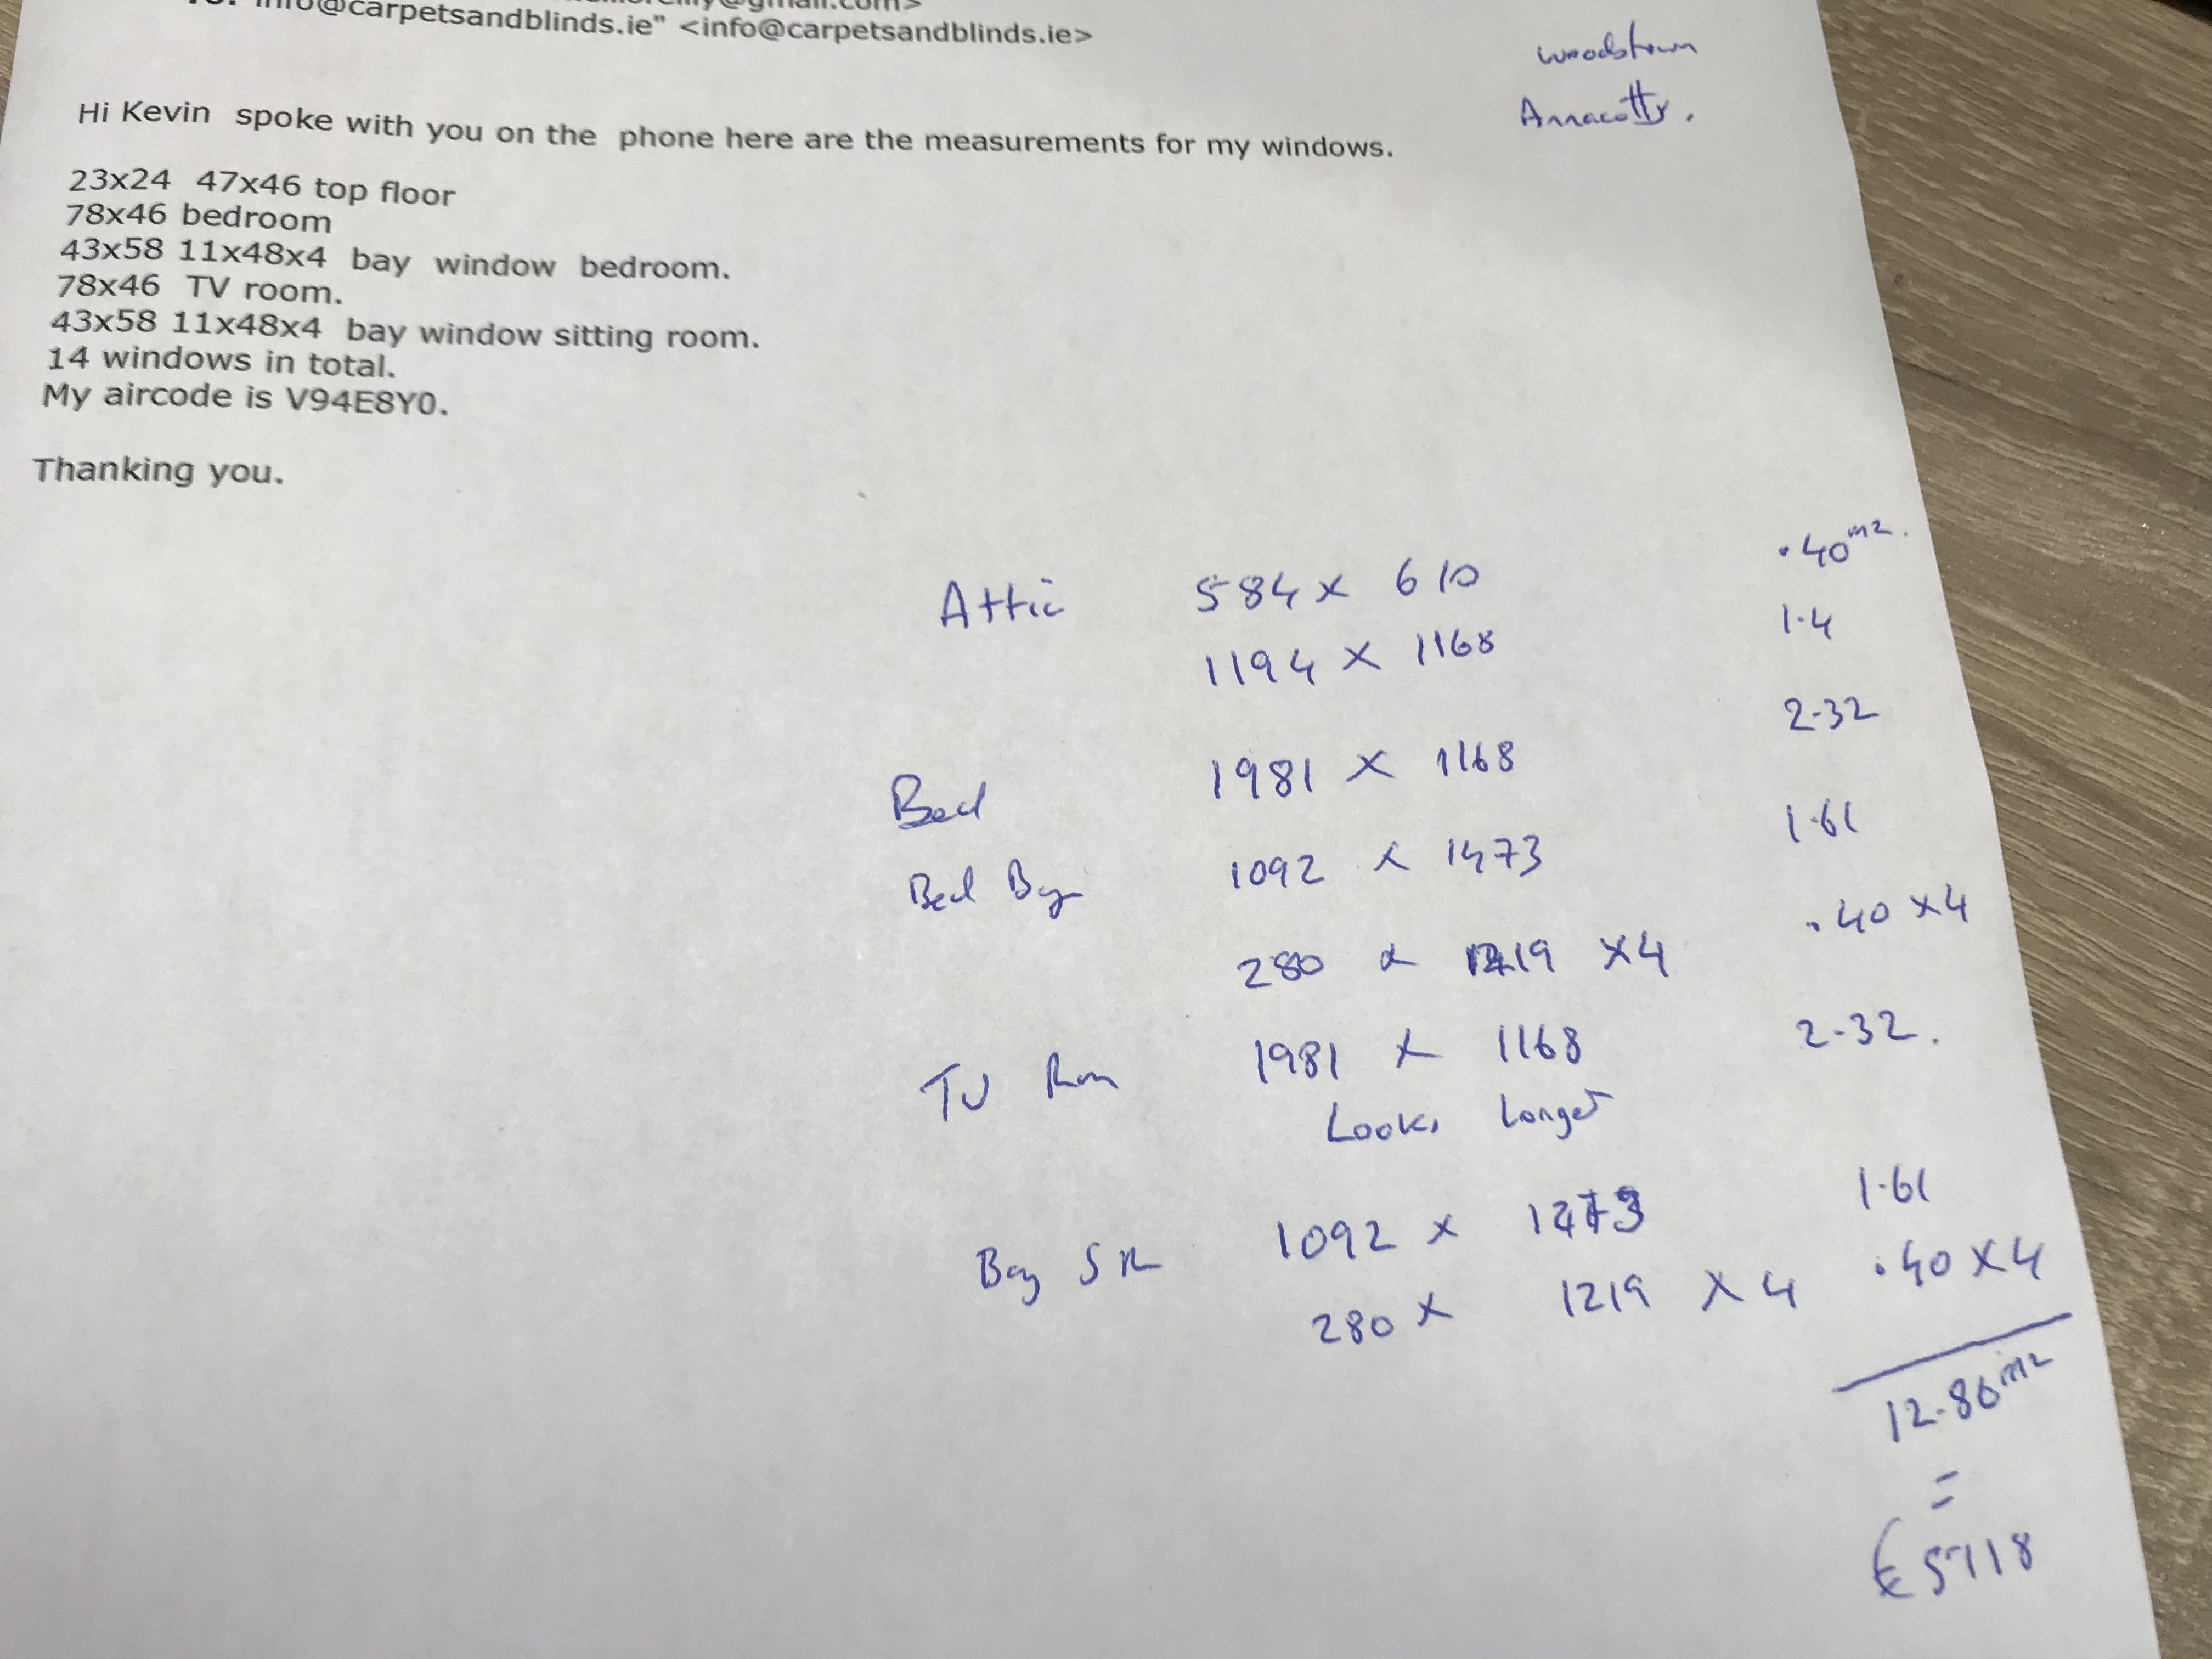 info@carpetsandblinds.ie" <info@carpetsandblinds.ie>
Woodstown
Annacotty.
Hi Kevin spoke with you on the phone here are the measurements for my windows.
23x24 47x46 top floor
78x46 bedroom
43x58 11x48x4 bay window bedroom.
78x46 TV room.
43x58 11x48x4 bay window sitting room.
14 windows in total.
My aircode is V94E8Y0.
Thanking you.
Attic 584 x 610 .40 m2.
1194 x 1168 1.4
Bed 1981 x 1168 2.32
Bed Bay 1092 x 1473 1.61
280 x 1219 x4 .40 x4
TV Rm 1981 x 1168 2.32.
Looks Longer
Bay SR 1092 x 1473 1.61
280 x 1219 x 4 .40 x 4
12.86 m2
=
€5718